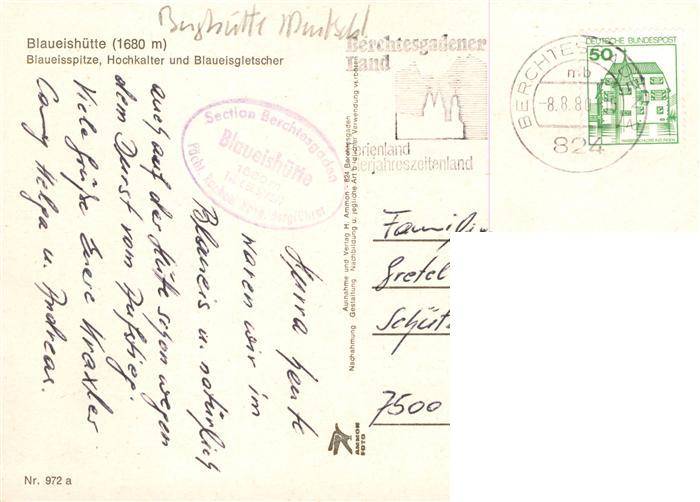 Berghütte
Blaueishütte (1680 m)
Blaueisspitze, Hochkalter und Blaueisgletscher
Hurra heute
waren wir im
Blaueis u. natürlich
auch auf der Hütte schon wegen
dem Durst vom Aufstieg.
Viele Grüße Eure Kraxler
Conny Helga u. Andreas.
Section Berchtesgaden
Blaueishütte
1680 m
Berchtesgadener
Land
Ferienland
Vierjahreszeitenland
BERCHTESGADEN
mb
-8.8.80
824
DEUTSCHE BUNDESPOST
50
Aufnahme und Verlag H. Ammon - 824 Berchtesgaden
Nachahmung Gestaltung Nachbildung u. jegliche Art bildlicher Verwendung verboten
AMMON
FOTO
Familie
Gretel
Schüt
7500
Nr. 972 a